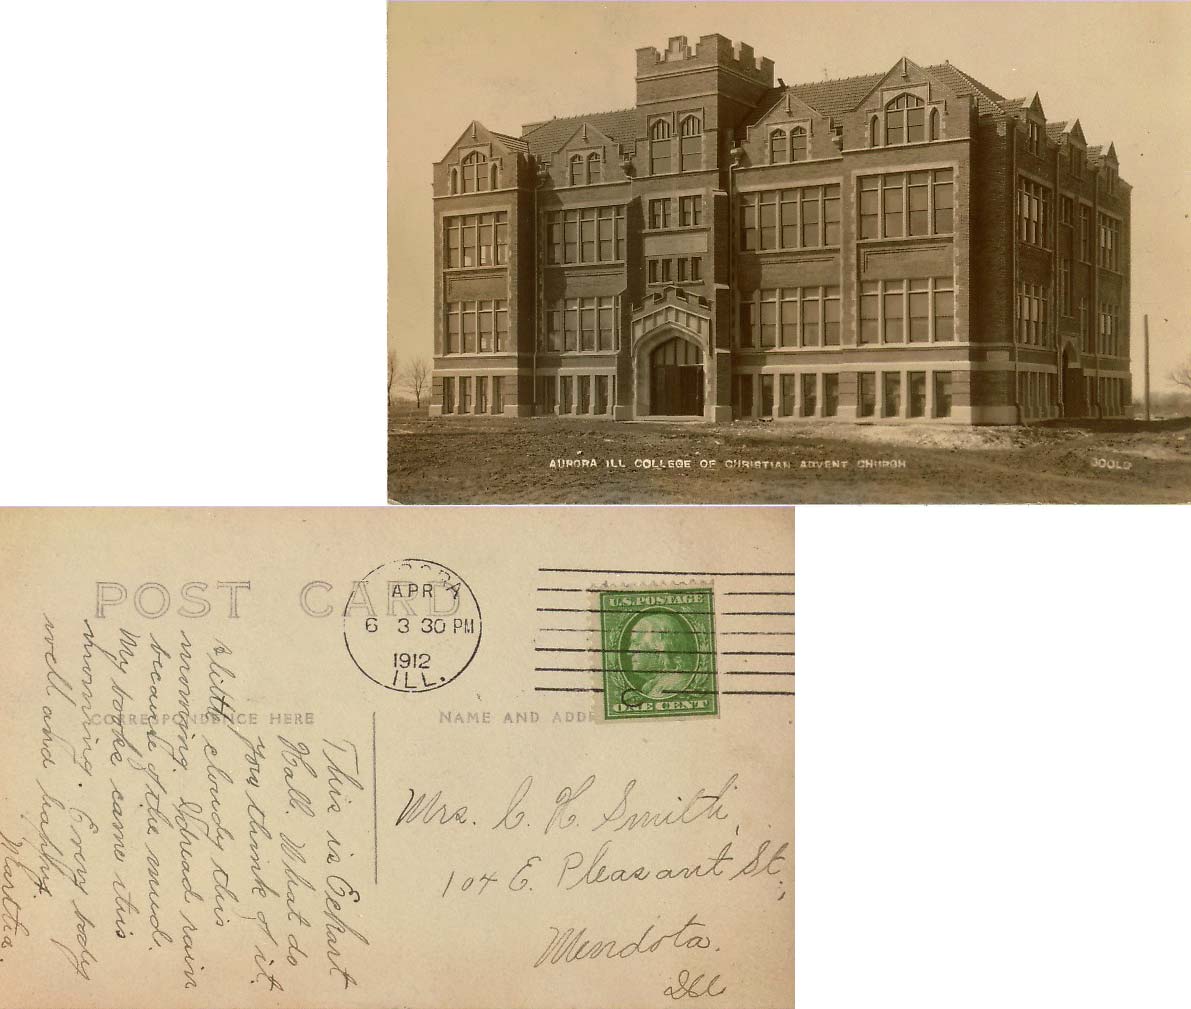 AURORA ILL COLLEGE OF CHRISTIAN ADVENT CHURCH
POST CARD
APR
6 3 30 PM
1912
ILL.
U.S. POSTAGE
ONE CENT
CORRESPONDENCE HERE
NAME AND ADD
This is Eckart
Hall. What do
you think of it.
A little cloudy this
morning. Dread rain
because of the mud.
My books came this
morning. Every body
well and happy.
Martha.
Mrs. C. H. Smith,
104 E. Pleasant St.,
Mendota.
Ill.